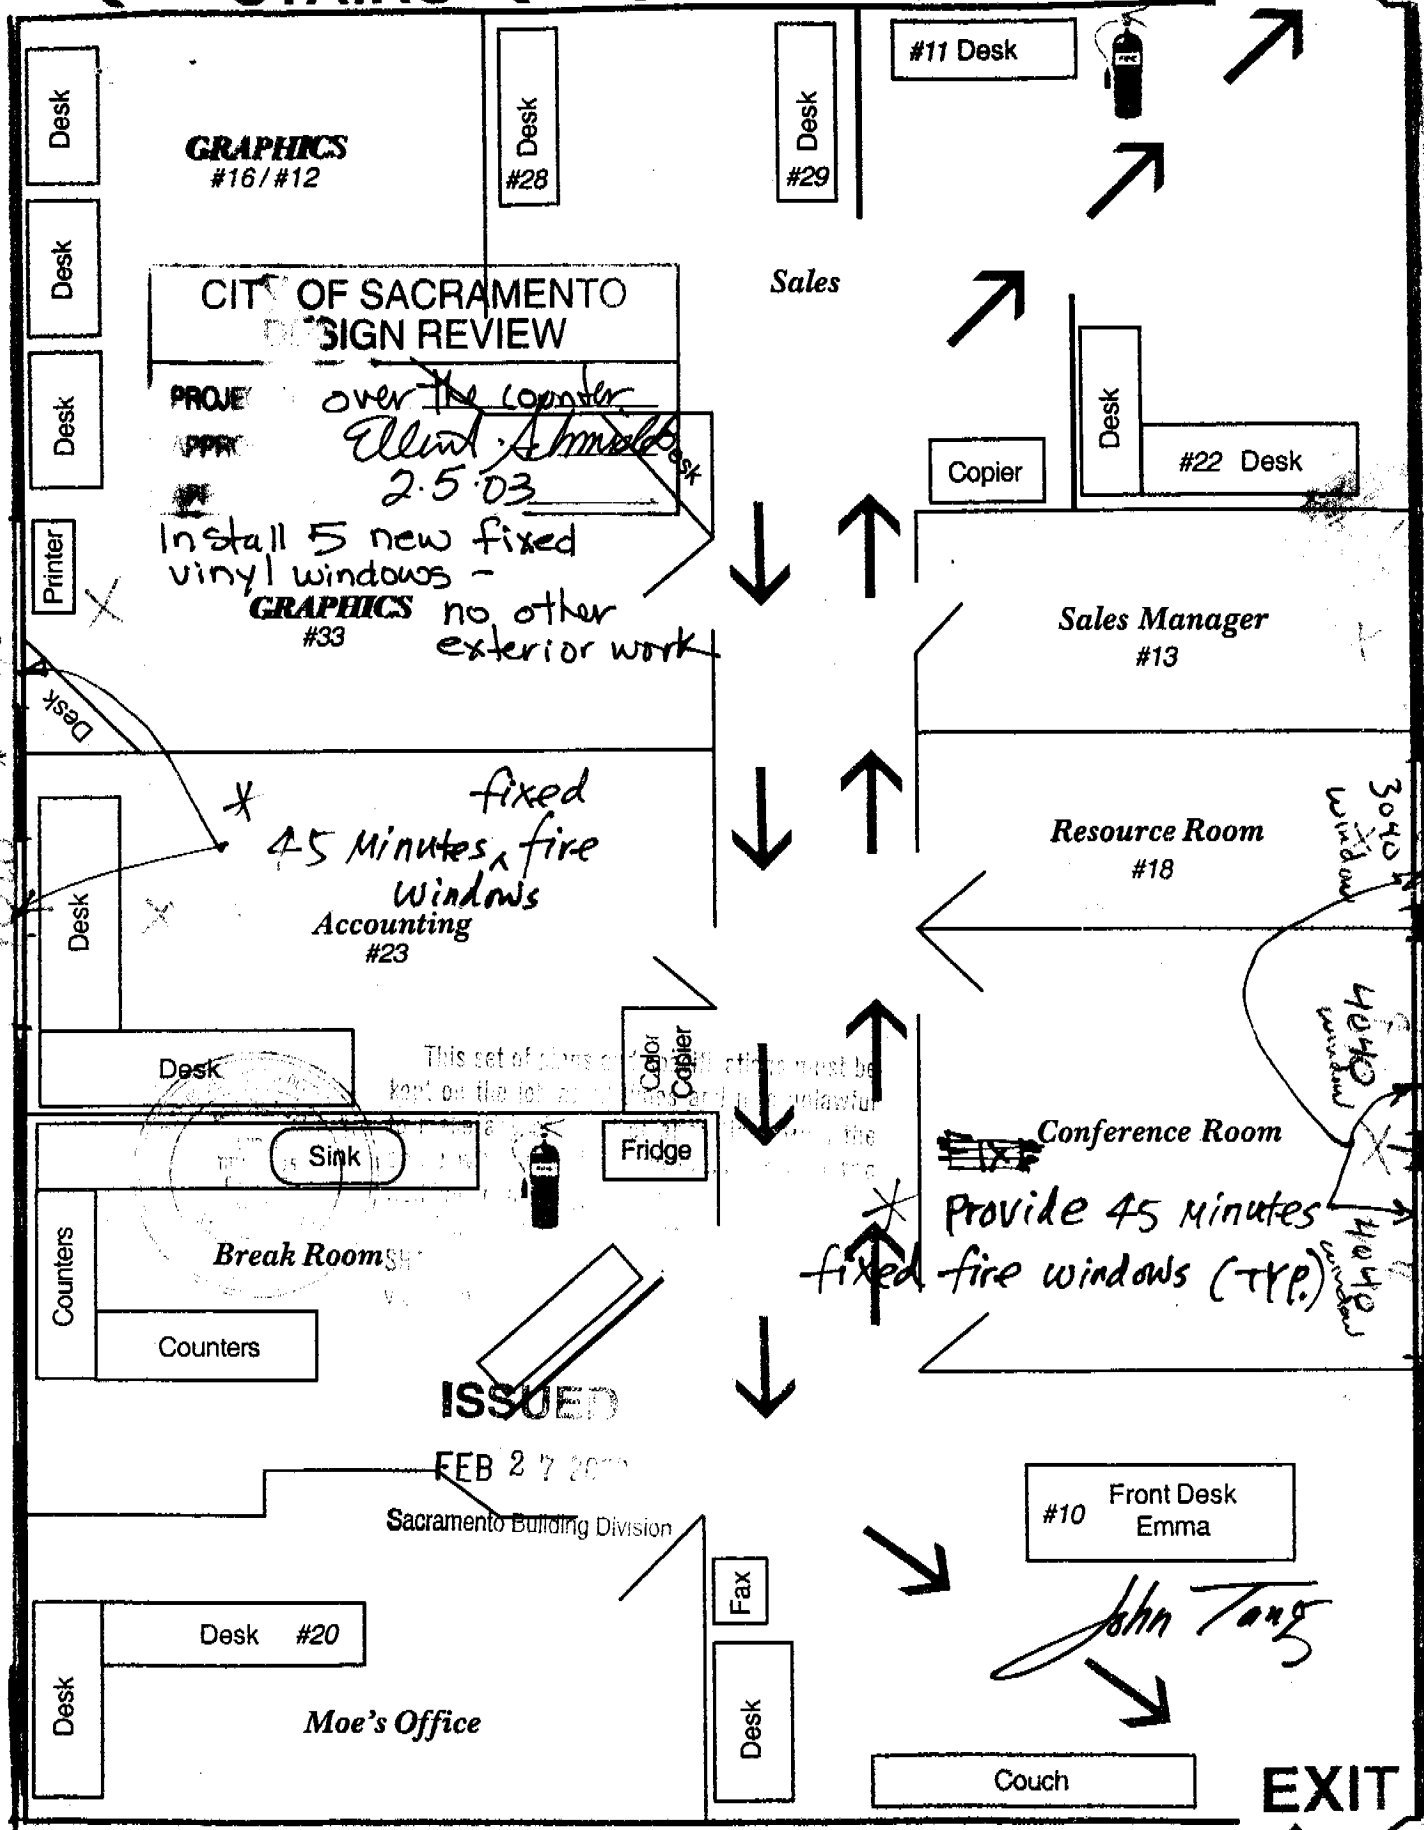 STAIRS
#11 Desk
Desk
GRAPHICS
#16 / #12
Desk
#28
Desk
#29
Desk
Sales
CITY OF SACRAMENTO
DESIGN REVIEW
PROJE
over the counter
APPR
2.5.03
Desk
Desk
Desk
#22 Desk
Copier
Install 5 new fixed
vinyl windows -
no other
exterior work
Printer
GRAPHICS
#33
Sales Manager
#13
Desk
fixed
45 Minutes ^ fire
Windows
Accounting
#23
Desk
Resource Room
#18
3040
window
4040
window
Desk
Color
Copier
This set of plans and specifications must be
kept on the job
unlawful
the
Sink
Fridge
Conference Room
Provide 45 Minutes
fixed fire windows (TYP.)
4040
window
Counters
Break Room
Counters
ISSUED
FEB 27
Sacramento Building Division
#10
Front Desk
Emma
Fax
John Tang
Desk #20
Desk
Moe's Office
Desk
Couch
EXIT